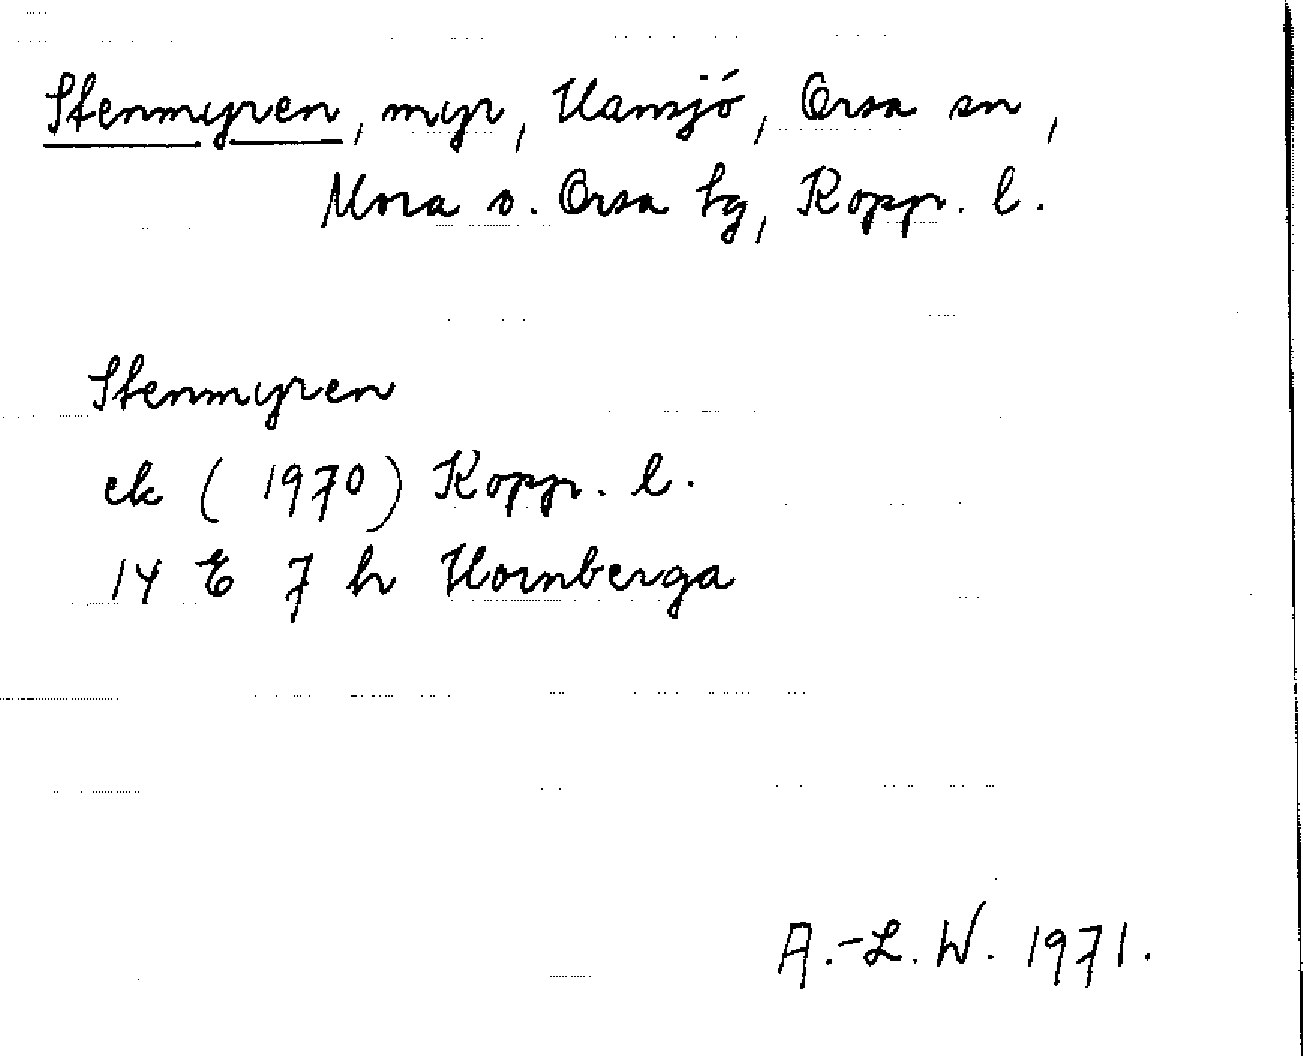 Stenmyren, myr, Hansjö, Orsa sn,
Mora o. Orsa tg, Kopp. l.
Stenmyren
ek (1970) Kopp. l.
14 E 7 h Hornberga
A.-L. W. 1971.